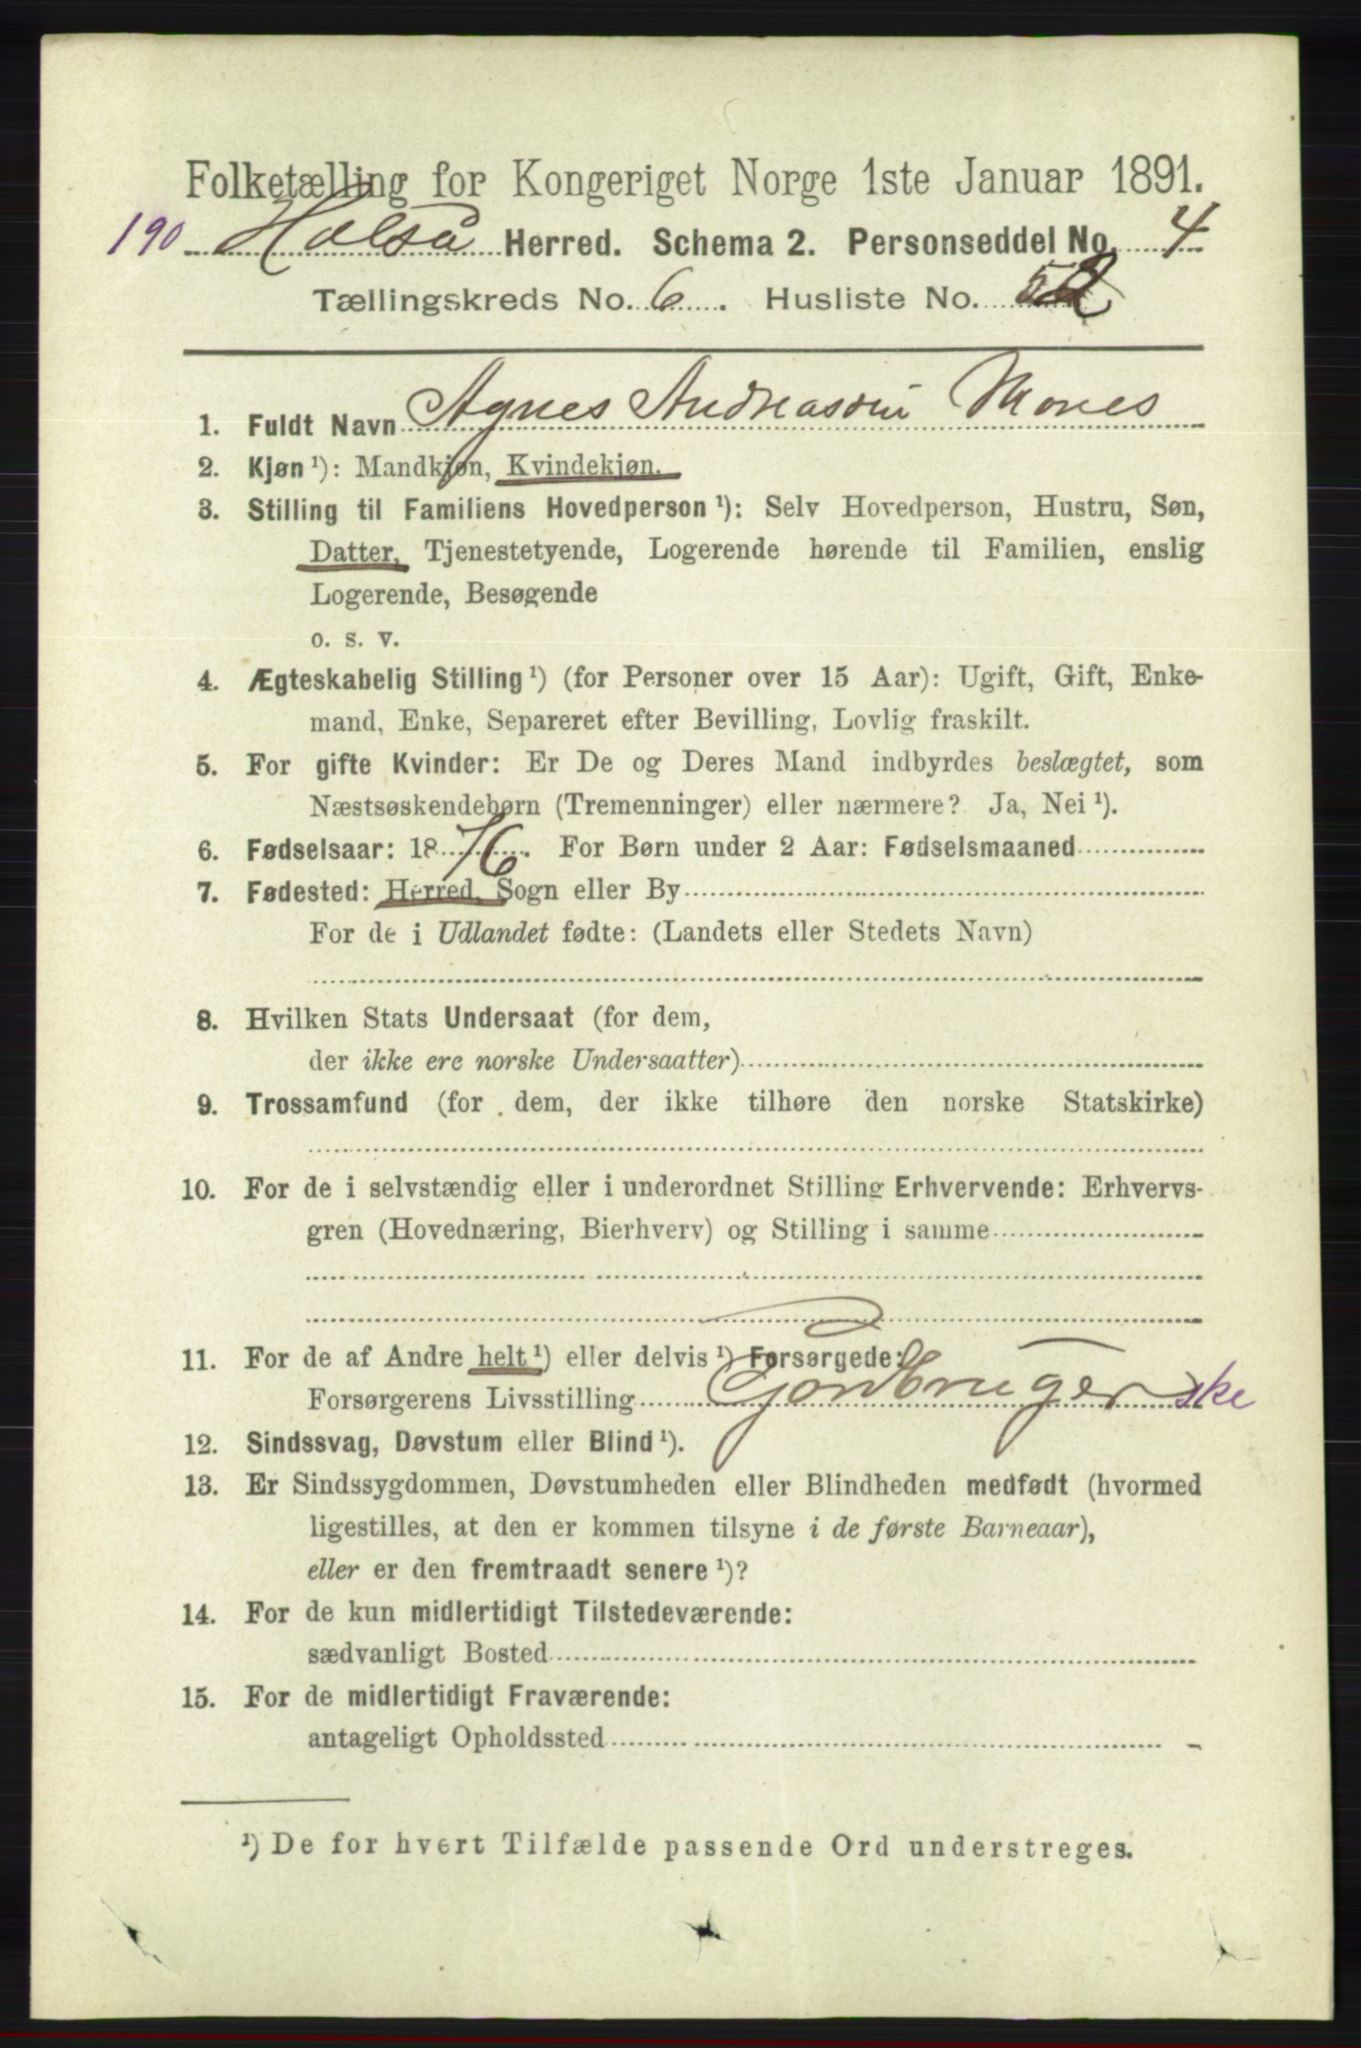 Folketælling for Kongeriget Norge 1ste Januar 1891.
190 Halsa Herred. Schema 2. Personseddel No. 4
Tællingskreds No. 6. Husliste No. 2
1. Fuldt Navn Agnes Andreasdin Mones
2. Kjøn ¹): Mandkjøn, Kvindekjøn.
3. Stilling til Familiens Hovedperson ¹): Selv Hovedperson, Hustru, Søn,
Datter, Tjenestetyende, Logerende hørende til Familien, enslig
Logerende, Besøgende
o. s. v.
4. Ægteskabelig Stilling ¹) (for Personer over 15 Aar): Ugift, Gift, Enke-
mand, Enke, Separeret efter Bevilling, Lovlig fraskilt.
5. For gifte Kvinder: Er De og Deres Mand indbyrdes beslægtet, som
Næstsøskendebørn (Tremenninger) eller nærmere? Ja, Nei ¹).
6. Fødselsaar: 1876. For Børn under 2 Aar: Fødselsmaaned
7. Fødested: Herred, Sogn eller By
For de i Udlandet fødte: (Landets eller Stedets Navn)
8. Hvilken Stats Undersaat (for dem,
der ikke ere norske Undersaatter)
9. Trossamfund (for dem, der ikke tilhøre den norske Statskirke)
10. For de i selvstændig eller i underordnet Stilling Erhvervende: Erhvervs-
gren (Hovednæring, Bierhverv) og Stilling i samme
11. For de af Andre helt ¹) eller delvis ¹) Forsørgede:
Forsørgerens Livsstilling Gordbrugerske
12. Sindssvag, Døvstum eller Blind ¹).
13. Er Sindssygdommen, Døvstumheden eller Blindheden medfødt (hvormed
ligestilles, at den er kommen tilsyne i de første Barneaar),
eller er den fremtraadt senere ¹)?
14. For de kun midlertidigt Tilstedeværende:
sædvanligt Bosted
15. For de midlertidigt Fraværende:
antageligt Opholdssted
¹) De for hvert Tilfælde passende Ord understreges.